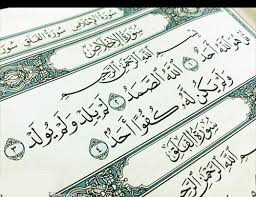 سورة الإخلاص سورة الفلق سورة
سُورَةُ الإِخْلَاصِ
بِسْمِ اللَّهِ الرَّحْمَٰنِ الرَّحِيمِ
قُلْ هُوَ اللَّهُ أَحَدٌ ١ اللَّهُ الصَّمَدُ ٢ لَمْ يَلِدْ وَلَمْ يُولَدْ ٣
وَلَمْ يَكُن لَّهُ كُفُوًا أَحَدٌ ٤
سُورَةُ الفَلَقِ
اللَّهِ الرَّحْمَٰنِ